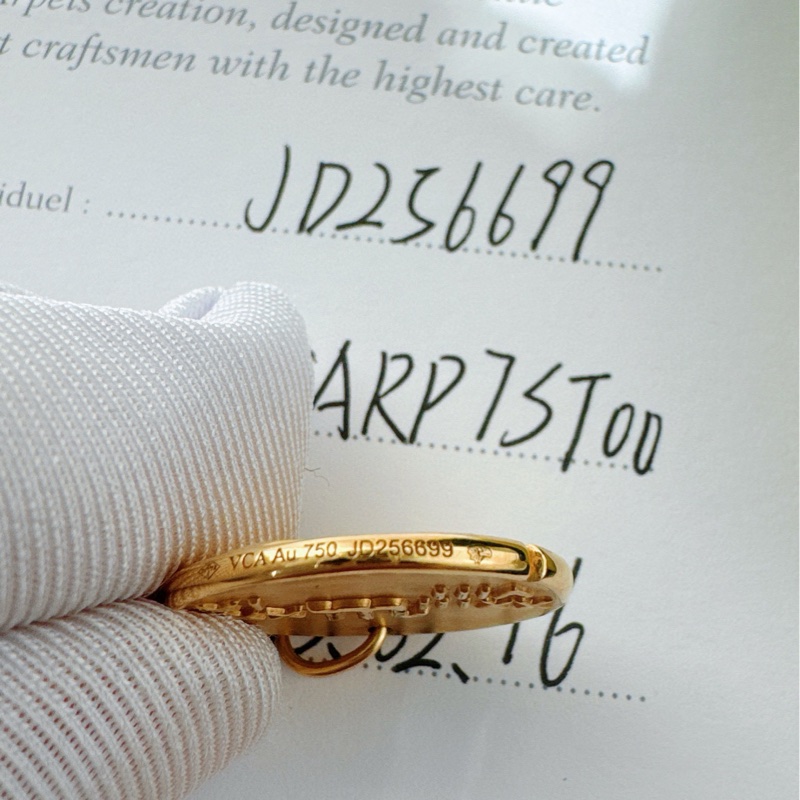 creation, designed and created
craftsmen with the highest care.
iduel : JD256699
ARP7ST00
VCA Au 750 JD256699
02.16